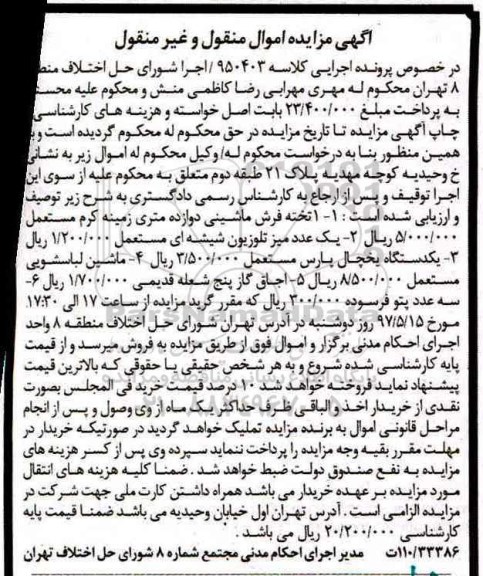 آگهی مزایده اموال منقول و غیر منقول
در خصوص پرونده اجرایی کلاسه ۹۵۰۴۰۳ /اجرا شورای حل اختلاف منطـ
۸ تهران محکوم له مهری مهرابی رضا کاظمی منش و محکوم علیه محسـ
به پرداخت مبلغ ۲۳/۴۰۰/۰۰۰ بابت اصل خواسته و هزینه های کارشناسی
چاپ آگهی مزایده تا تاریخ مزایده در حق محکوم له محکوم گردیده است و
همین منظور بنا به درخواست محکوم له/ وکیل محکوم له اموال زیر به نشانی
خ وحیدیه کوچه مهدیه پلاک ۲۱ طبقه دوم متعلق به محکوم علیه از سوی این
اجرا توقیف و پس از ارجاع به کارشناس رسمی دادگستری به شرح زیر توصیف
و ارزیابی شده است : ۱- ۱تخته فرش ماشینی دوازده متری زمینه کرم مستعمل
۵/۰۰۰/۰۰۰ ریال ۲- یک عدد میز تلوزیون شیشه ای مستعمل ۱/۲۰۰/۰۰۰ ریال
۳- یکدستگاه یخچال پارس مستعمل ۳/۵۰۰/۰۰۰ ریال ۴- ماشین لباسشویی
مستعمل ۸/۵۰۰/۰۰۰ ریال ۵- اجاق گاز پنج شعله قدیمی ۱/۷۰۰/۰۰۰ ریال ۶-
سه عدد پتو فرسوده ۳۰۰/۰۰۰ ریال که مقرر گرید مزایده از ساعت ۱۷ الی ۱۷:۳۰
مورخ ۹۷/۵/۱۵ روز دوشنبه در آدرس تهران شورای حل اختلاف منطقه ۸ واحد
اجرای احکام مدنی برگزار و اموال فوق از طریق مزایده به فروش میرسد و از قیمت
پایه کارشناسی شده شروع و به هر شخص حقیقی یا حقوقی که بالاترین قیمت
پیشنهاد نماید فروخته خواهد شد. ۱۰ درصد قیمت خرید فی المجلس بصورت
نقدی از خریدار اخذ و الباقی ظرف حداکثر یک ماه از وی وصول و پس از انجام
مراحل قانونی اموال به برنده مزایده تملیک خواهد گردید در صورتیکه خریدار در
مهلت مقرر بقیه وجه مزایده را پرداخت ننماید سپرده وی پس از کسر هزینه های
مزایده به نفع صندوق دولت ضبط خواهد شد . ضمنا کلیه هزینه های انتقال
مورد مزایده بر عهده خریدار می باشد همراه داشتن کارت ملی جهت شرکت در
مزایده الزامی است . آدرس تهران اول خیابان وحیدیه می باشد ضمنا قیمت پایه
کارشناسی ۲۰/۲۰۰/۰۰۰ ریال می باشد .
۱۱۰/۳۳۳۸۶ت مدیر اجرای احکام مدنی مجتمع شماره ۸ شورای حل اختلاف تهران